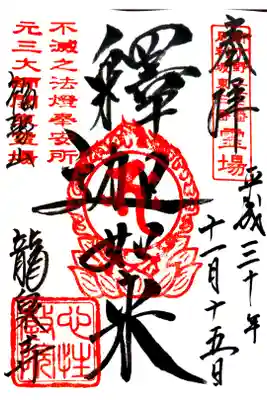 奉拝
平成三十年
十一月十五日
釋迦如来
不滅之法燈奉安所
元三大師
龍泉寺